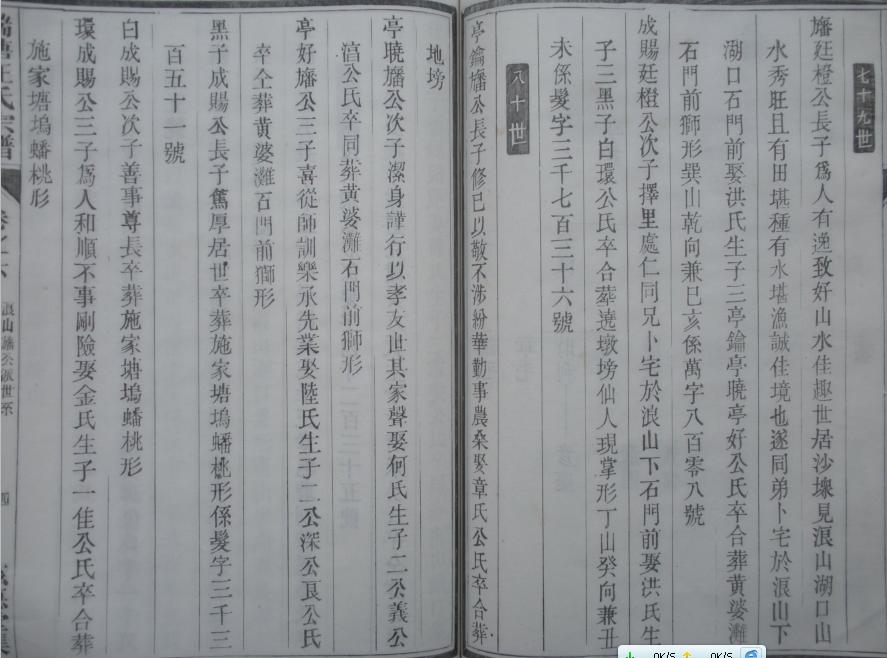 七十九世
旛廷橙公長子爲人有逸致好山水佳趣世居沙墩見浪山湖口山
水秀旺且有田堪種有水堪漁誠佳境也遂同弟卜宅於浪山下
湖口石門前娶洪氏生子三亭鑰亭曉亭好公氏卒合葬黄婆灘
石門前獅形巽山乾向兼巳亥係萬字八百零八號
成賜廷橙公次子擇里處仁同兄卜宅於浪山下石門前娶洪氏生
子三黑子白環公氏卒合葬遶墩塝仙人現掌形丁山癸向兼丑
未係髮字三千七百三十六號
八十世
亭鑰旛公長子修已以敬不涉紛華勤事農桑娶章氏公氏卒合葬
地塝
亭曉旛公次子潔身謹行以孝友世其家聲娶何氏生子二公義公
公氏卒同葬黄婆灘石門前獅形
亭好旛公三子喜從師訓樂承先業娶陸氏生子二公深公良公氏
卒仝葬黄婆灘石門前獅形
黑子成賜公長子篤厚居世卒葬施家塘塢蟠桃形係髮字三千三
百五十一號
白成賜公次子善事尊長卒葬施家塘塢蟠桃形
環成賜公三子爲人和順不事剛險娶金氏生子一佳公氏卒合葬
施家塘塢蟠桃形
汪氏宗譜
浪山旛公派世系
四
0K/S 0K/S